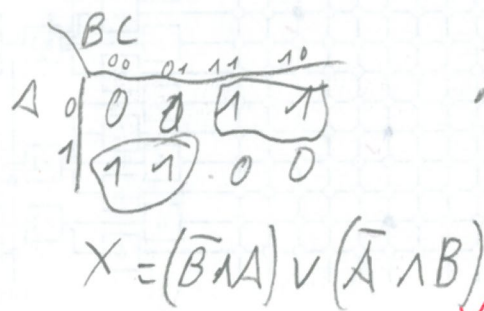 BC
00 01 11 10
A 0 0 0 1 1
1 1 1 0 0
X = (B̅ ∧ A) ∨ (A̅ ∧ B)